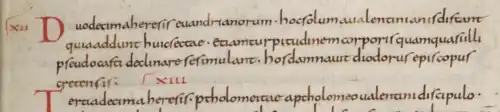 XII Duodecima heresis euandrianorum · hoc solum aualentinianis distant
qui addunt huic sectae · etiam turpitudinem corporis quamquasi illi
pseudo casti declinare se simulant · hos damnauit diodorus episcopus
cretensis · XIII
Tertia decima heresis · ptholomeitae aptholomeo ualentini discipulo ·